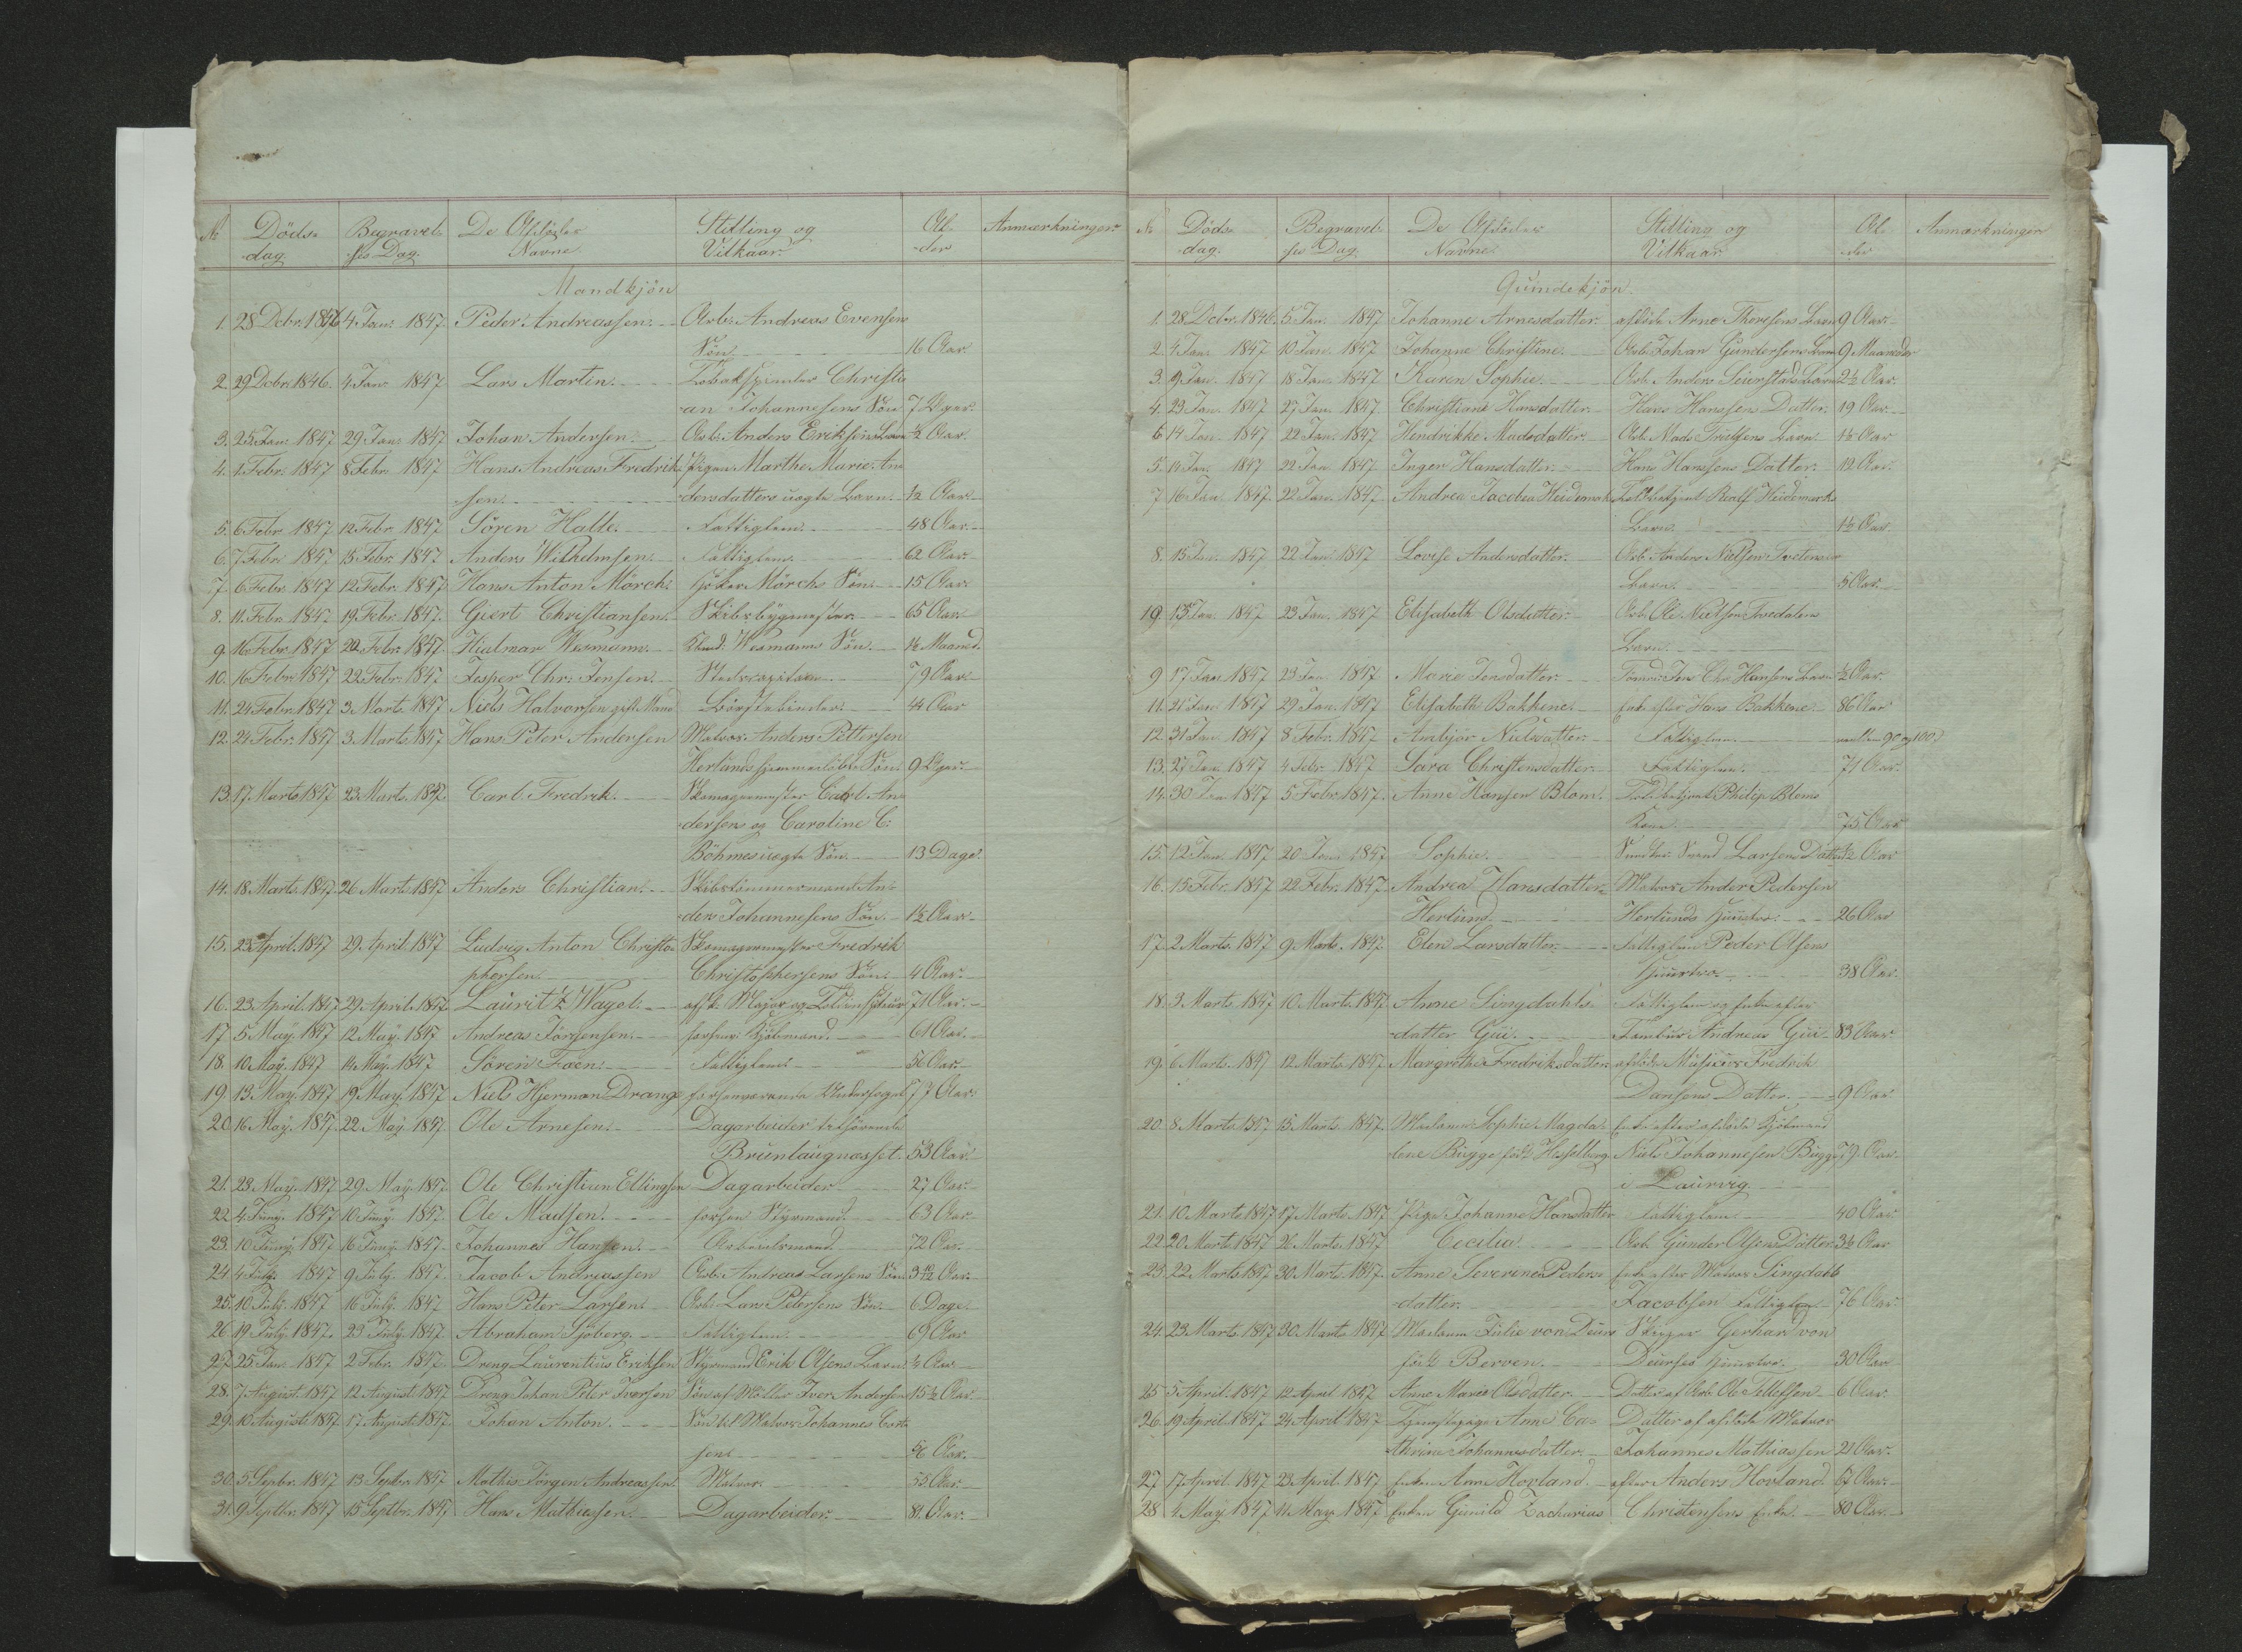 No Döds- Begravel- De Afdödes Stilling og Al- Anmærkninger
dag. ses Dag. Navne. Vilkaar. der
Mandkjön
1. 28 Decbr. 1846 4 Jan. 1847. Peder Andreassen. Arb. Andreas Evensens
Sön 16 Aar.
2. 29 Decbr. 1846. 4 Jan. 1847 Lars Martin. Tobakspinder Christi-
an Johannesens Sön 7 Uger.
3. 25 Jan. 1847 29 Jan. 1847 Johan Andersen. Arb. Anders Eriksens Barn ½ Aar.
4. 1. Febr. 1847 8 Febr. 1847 Hans Andreas Fredrik- Pigen Marthe Marie An-
sen. dersdatters uægte Barn. ½ Aar.
5. 6 Febr. 1847 12 Febr. 1847 Sören Halle. Fattiglem. 48 Aar.
6. 7 Febr. 1847 15 Febr. 1847 Anders Wilhelmsen. Fattiglem. 62 Aar.
7 6 Febr. 1847 12 Febr. 1847 Hans Anton Mörch. Mörchs Sön. 15 Aar.
8. 11. Febr. 1847 19 Febr. 1847. Giert Christiansen. Skibsbygmester 65 Aar
9 16 Febr. 1847 22 Febr. 1847. Hialmar Wesmann. Wesmanns Sön. Maaned.
10. 16 Febr. 1847 22 Febr. 1847. Jesper Chr. Jensen. 79 Aar
11. 24 Febr. 1847 3 Marts 1847 Niels Halvorsen gift Mand Börstebinder. 44 Aar
12. 24 Febr. 1847 3 Marts 1847 Hans Peter Andersen Matros Anders Pettersen
Herlunds hjemmedöbte Sön. 9 Uger.
13. 17. Marts 1847 23 Marts. 1847. Carl Fredrik. Skomagermester Carl An-
dersens og Caroline C:
Böhmes uægte Sön. 13 Dage.
14. 18. Marts. 1847. 26 Marts. 1847 Anders Christian. Skibstömmermand An-
ders Johannesens Sön. 1½ Aar.
15. 23 April. 1847 29. April 1847 Ludvig Anton Christo- Skomagermester Fredrik
phersen. Christophersens Sön. 4 Aar.
16. 23. April. 1847 29. April. 1847. Lauritz Wagel. afsk. Major og 71 Aar.
17 5 May. 1847 12 May. 1847 Andreas Jörgensen. forhen Kjöbmand. 61 Aar.
18. 10 May. 1847 14 May. 1847 Sören Foen. Fattiglem 56 Aar.
19. 13. May. 1847 19 May. 1847 Niels Hjerman Drange forhenværende Underfoged 77 Aar.
20. 16 May. 1847. 22 May. 1847 Ole Arnesen. Dagarbeider tilhörende
Brunlaugnæsset. 53 Aar.
21. 23. May. 1847 29. May. 1847. Ole Christian Ellingsen Dagarbeider 27 Aar.
22 4 Juny. 1847 10 Juny. 1847. Ole Madsen. forhen Styrmand. 63 Aar.
23. 10 Juny. 1847 16 Juny. 1847. Johannes Hansen. Arbeidsmand. 72 Aar.
24. 4 July. 1847 9 July. 1847. Jacob Andreassen Arb. Andreas Larsens Sön Aar.
25. 10. July. 1847 16 July. 1847 Hans Peter Larsen. Arb. Lars Petersens Sön. 6 Dage.
26. 19 July. 1847. 23 July. 1847 Abraham Sjöberg. Fattiglem. 69 Aar
27. 25. Jan. 1847 2 Febr. 1847. Dreng Laurentius Eriksen Styrmand Erik Olsens Barn Aar.
28. 7 August. 1847 12 August. 1847 Dreng Johan Peter Iversen Sön af Möller Iver Andersen 15½ Aar.
29. 10 August. 1847 17 August. 1847. Johan Anton. Sön til Matros Johannes
sens Aar.
30. 5 Septbr. 1847 13 Septbr. 1847 Mathis Jörgen Andreassen. Matros. 55 Aar.
31. 9 Septbr. 1847 15 Septbr. 1847 Hans Mathiassen. Dagarbeider. 81. Aar.
No Döds- Begravel- De Afdödes Stilling og Al- Anmærkninger
dag. ses Dag. Navne. Vilkaar. der
Quindekjön.
1. 28. Decbr. 1846. 5 Jan. 1847 Johanne Arnesdatter. afdöde Arne Thoresens Barn 9 Aar.
2. 4 Jan. 1847 10 Jan. 1847 Johanne Christine. Arb. Johan Gundersens Barn 9 Maaneder
3. 9 Jan. 1847 18 Jan. 1847 Karen Sophie. Arb. Anders Barn 2½ Aar.
4. 23 Jan. 1847 27 Jan. 1847. Christiane Hansdatter. Hans Hanssens Datter. 19 Aar.
6 14 Jan. 1847 22 Jan. 1847 Hendrikke Madsdatter. Arb. Mads Trulsens Barn. Aar
5. 14 Jan. 1847 22 Jan. 1847 Inger Hansdatter. Hans Hanssens Datter. 12 Aar.
7 16 Jan. 1847. 22 Jan. 1847. Andrea Jacobea Heidemark Toldbetjent Realf Heidemarks
Barn. 1½ Aar.
8. 15 Jan. 1847 22 Jan. 1847 Lovise Andersdatter. Arb. Anders Nielsen
Barn. 5 Aar.
19. 15 Jan. 1847 23 Jan. 1847 Elisabeth Olsdatter. Arb. Ole Nielsen
Barn.
9 17 Jan. 1847 23 Jan. 1847 Marie Jensdatter. Tömrm. Jens Chr. Hansens Barn ½ Aar.
11. 21 Jan. 1847 29 Jan. 1847 Elisabeth Bakkene. Enke efter Hans Bakkene. 86 Aar
12. 31 Jan. 1847 8 Febr. 1847 Anbjör Nielsdatter. Fattiglem. mellem 90 og 100
13. 27 Jan. 1847 4 Febr. 1847 Sara Christensdatter. Fattiglem. 71 Aar.
14. 30 Jan. 1847 5 Febr. 1847. Anne Hansen Blom. Toldbetjent Philip Bloms
Kone. 75 Aar
15. 12 Jan. 1847 20 Jan. 1847 Sophie. Svend Larsens Datter ½ Aar
16. 15 Febr. 1847 22 Febr. 1847. Andrea Hansdatter Matros Ander Pedersen
Herlund. Herlunds Huustro. 26 Aar
17. 2 Marts. 1847 9 Marts. 1847. Elen Larsdatter. Fattiglem Peder Olsens
Huustro. 38 Aar.
18. 3. Marts. 1847 10 Marts. 1847. Anne Fattiglem og Enke efter
datter Gui. Tambur Andreas Gui 83 Aar.
19. 6 Marts. 1847 12 Marts. 1847 Margrethe Fredriksdatter. afdöde Musicus Fredrik
Dansens Datter. 9 Aar
20. 8 Marts. 1847 15 Marts. 1847. Madame Sophie Magda- Enke efter afdöde Kjöbmand
lene Bugge född Hesselberg. Niels Johannesen Bugge 79. Aar.
i Laurvig.
21. 10 Marts 1847 17 Marts. 1847 Pige Johanne Hansdatter Fattiglem. 40 Aar
22. 20 Marts. 1847 26 Marts. 1847 Cecilia. Arb. Gunder Olsens Datter 3½ Aar
23. 22. Marts. 1847 30 Marts. 1847. Anne Severine Peders- Enke efter Matros Singdahl
datter. Jacobsen Fattiglem 76 Aar.
24. 23. Marts. 1847 30. Marts. 1847 Madame Julie von Deurs Skipper Gerhard von
född Berven. Deurses Huustro. 30 Aar
25. 5 April. 1847 12 April 1847 Anne Marie Olsdatter. Datter af Arb. Ole Tellefsen 6 Aar.
26. 19 April. 1847 24 April 1847 Tjenestepige Anne Ca- Datter af afdöde Matros
thrine Johannesdatter. Johannes Mathiassen 21 Aar.
27 17 April 1847 23 April. 1847 Enken Anne Hovland. efter Anders Hovland. Aar.
28 4. May 1847 11. May. 1847 Enken Gunild Zacharias Christensens Enke. 80 Aar.